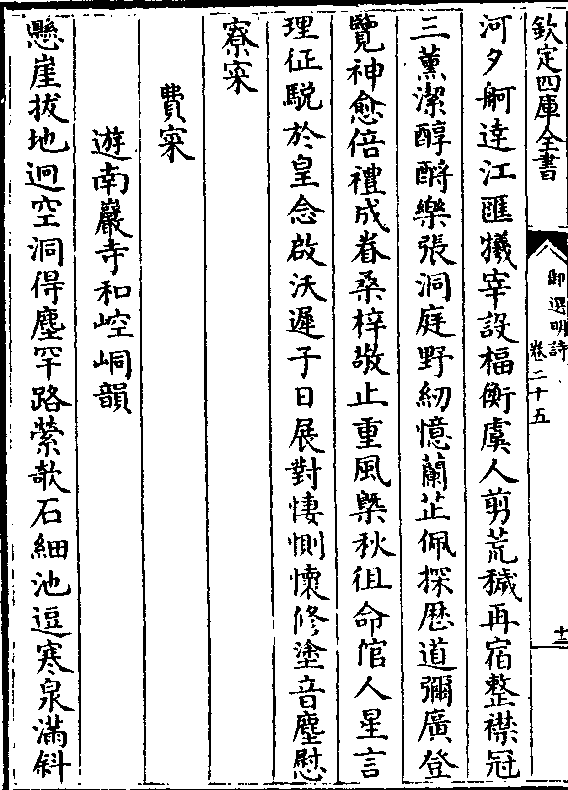 欽定四庫全書
御選明詩
卷二十五
十三
河夕舸達江匯犧宰設楅衡虞人剪荒穢再宿整襟冠
三薰潔醇酹樂張洞庭野紉憶蘭芷佩探歴道彌廣登
覽神愈倍禮成眷桑梓敬止重風槩秋徂命倌人星言
理征駾於皇念啟沃遲子日展對悽惻懷修塗音塵慰
寮寀
費寀
遊南巖寺和崆峒韻
懸崖拔地迥空洞得塵罕路縈欹石細池逗寒泉滿斜